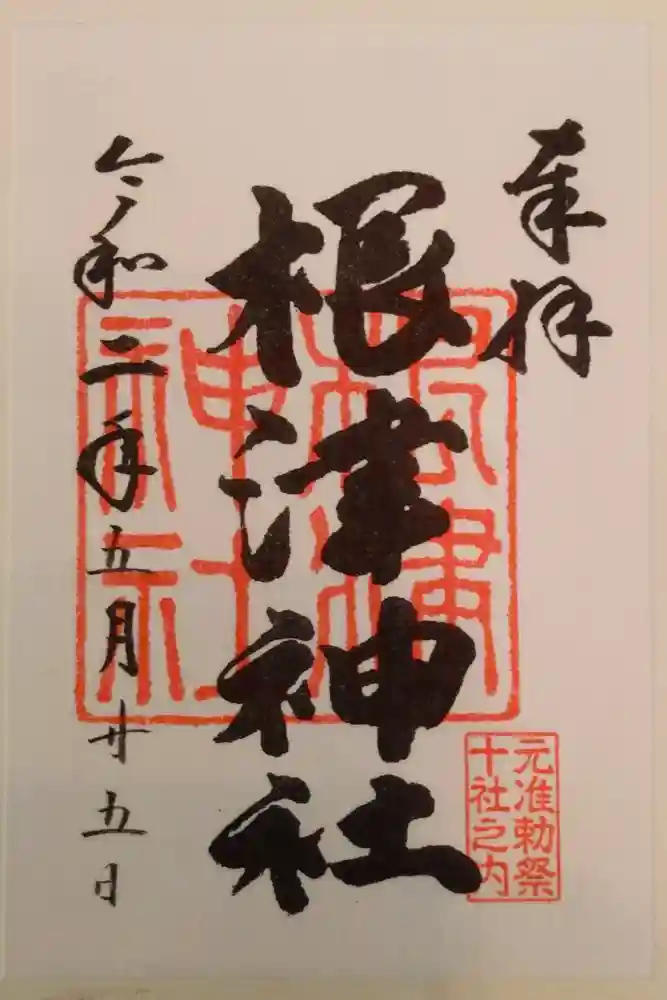 奉拝
根津神社
令和二年五月廿五日
根津
神社
元准勅祭
十社之内